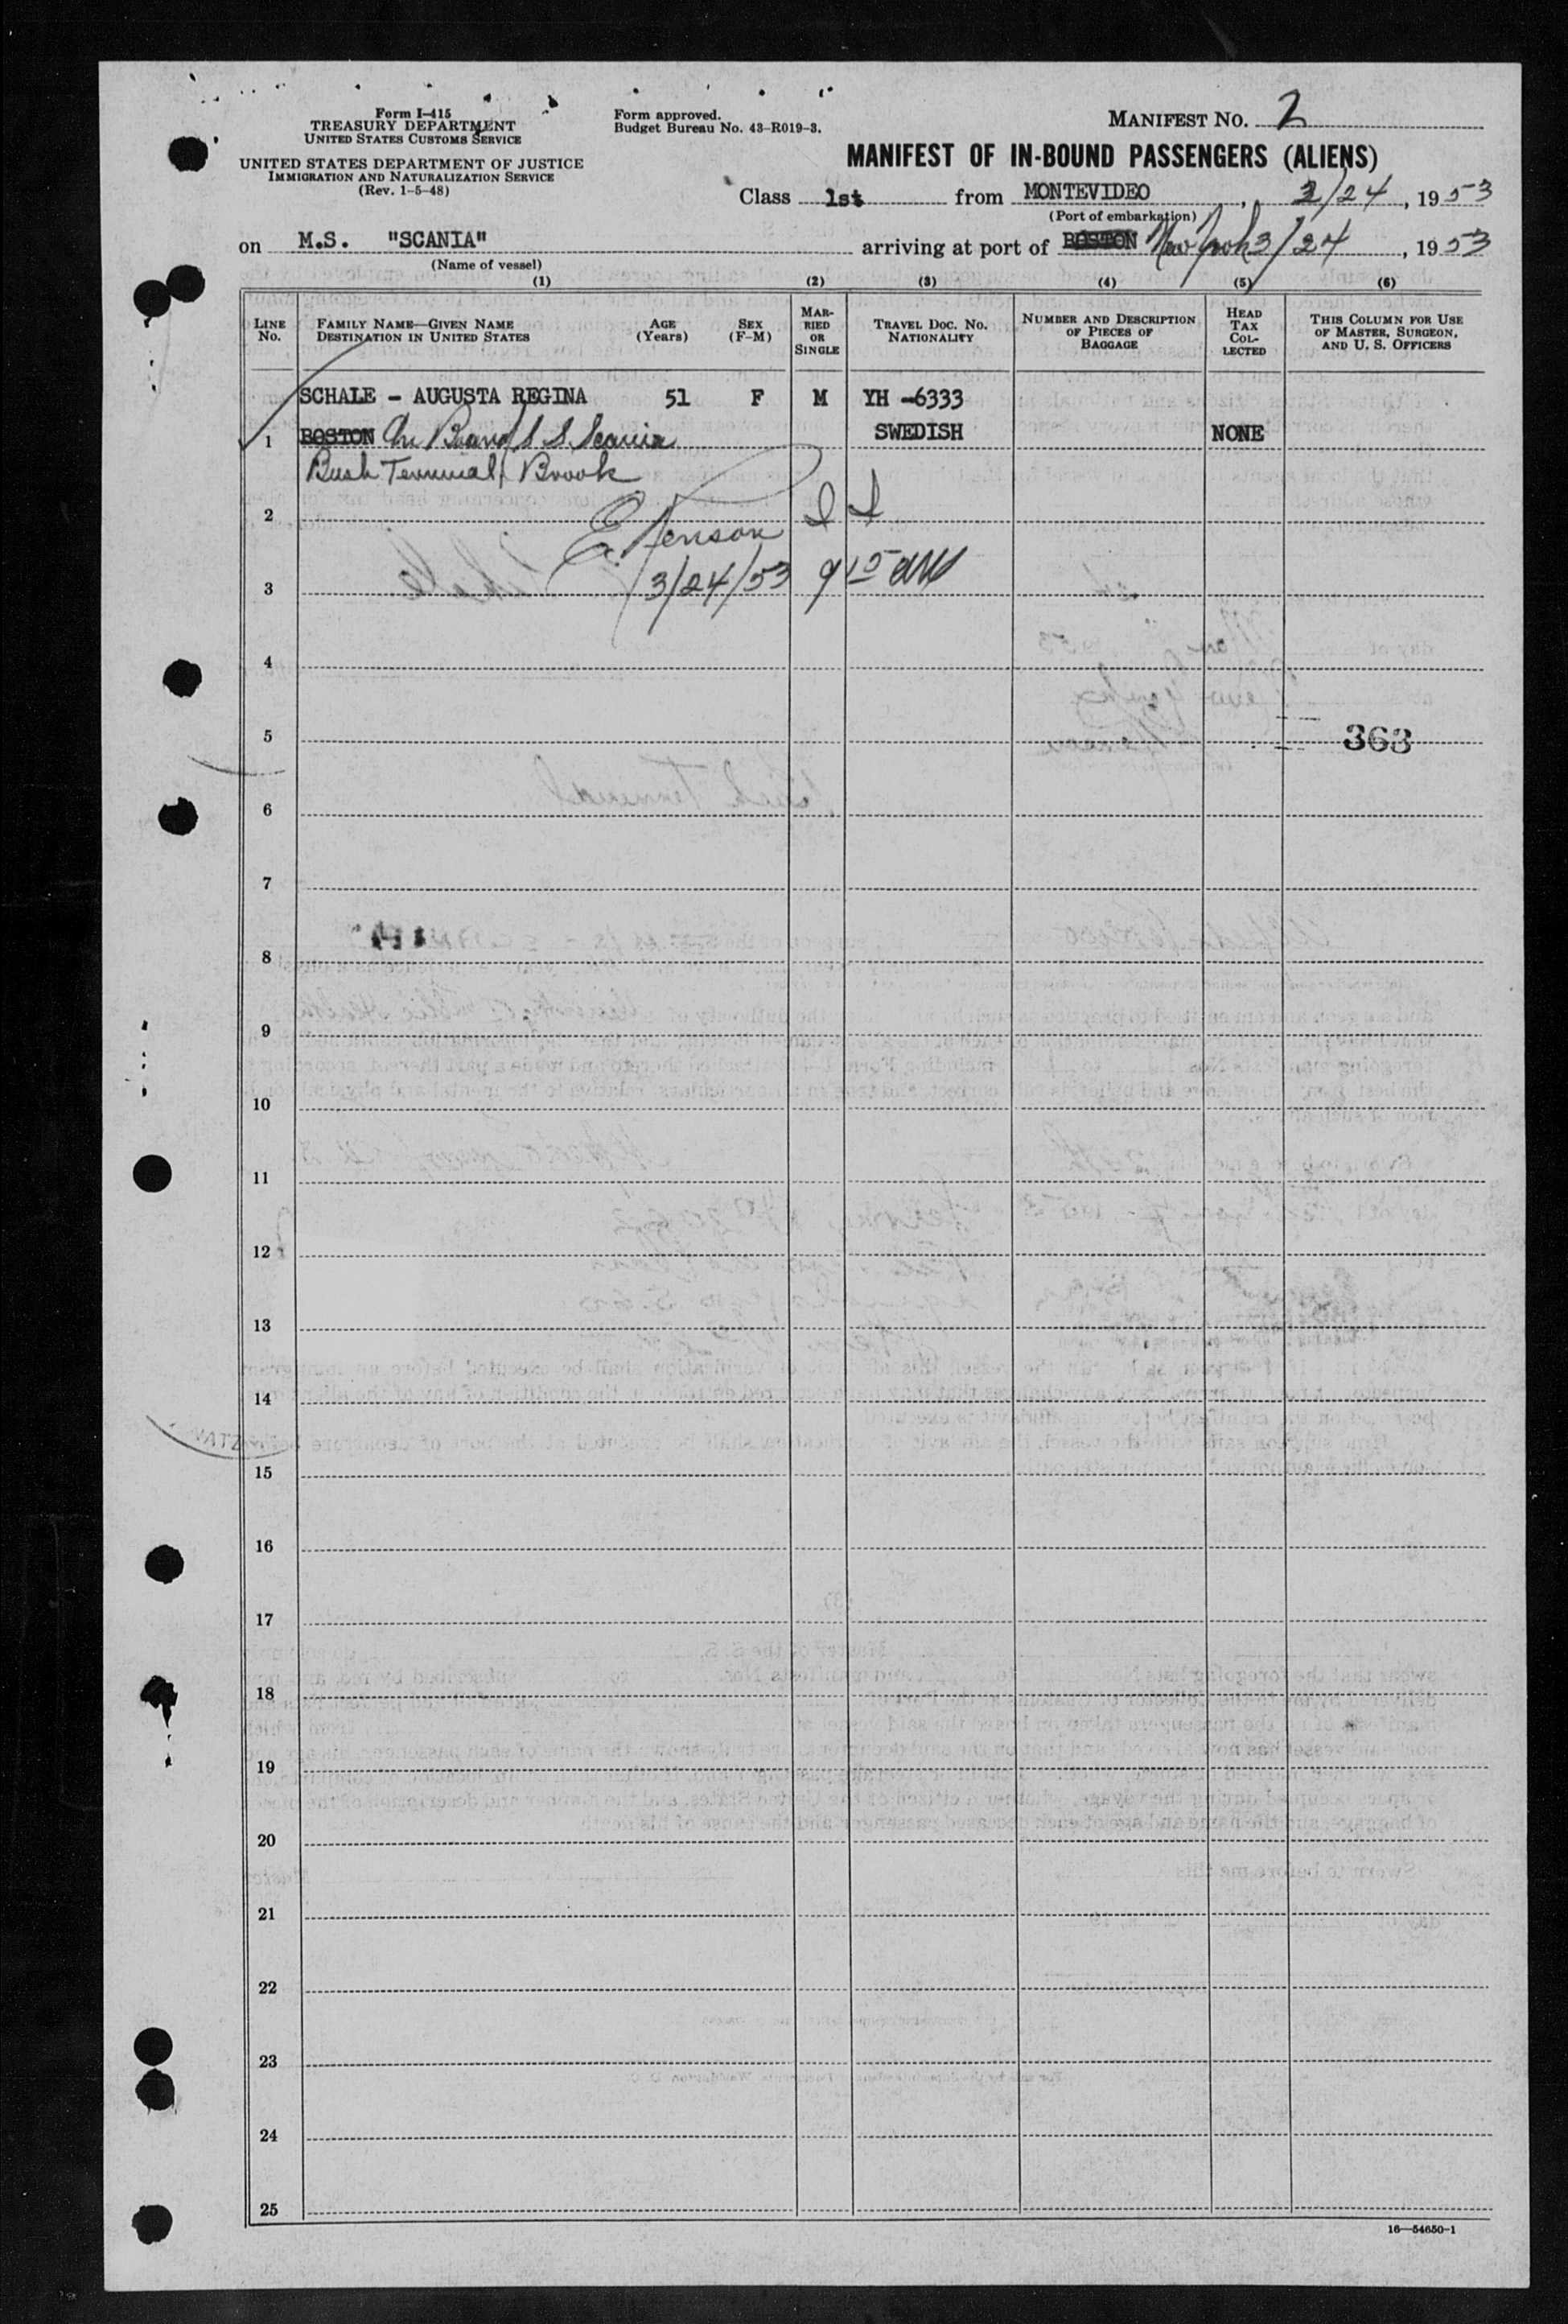 Form I-415
TREASURY DEPARTMENT
UNITED STATES CUSTOMS SERVICE
UNITED STATES DEPARTMENT OF JUSTICE
IMMIGRATION AND NATURALIZATION SERVICE
(Rev. 1-5-48)
Form approved.
Budget Bureau No. 43-R019-3.
MANIFEST NO. 2
MANIFEST OF IN-BOUND PASSENGERS (ALIENS)
Class 1st from MONTEVIDEO, 2/24, 1953
(Port of embarkation)
on M.S. "SCANIA" arriving at port of BOSTON New York 3/24, 1953
(Name of vessel)
(1) (2) (3) (4) (5) (6)
LINE No.
FAMILY NAME—GIVEN NAME
DESTINATION IN UNITED STATES
AGE (Years)
SEX (F-M)
MAR-RIED OR SINGLE
TRAVEL DOC. NO. NATIONALITY
NUMBER AND DESCRIPTION OF PIECES OF BAGGAGE
HEAD TAX COL-LECTED
THIS COLUMN FOR USE OF MASTER, SURGEON, AND U. S. OFFICERS
SCHALE - AUGUSTA REGINA 51 F M YH -6333
1 BOSTON On Board S S Scania SWEDISH NONE
Bush Terminal Brook
2
3 3/24/53 9 15 AM
4
5 363
6
7
8
9
10
11
12
13
14
15
16
17
18
19
20
21
22
23
24
25
16—54650-1